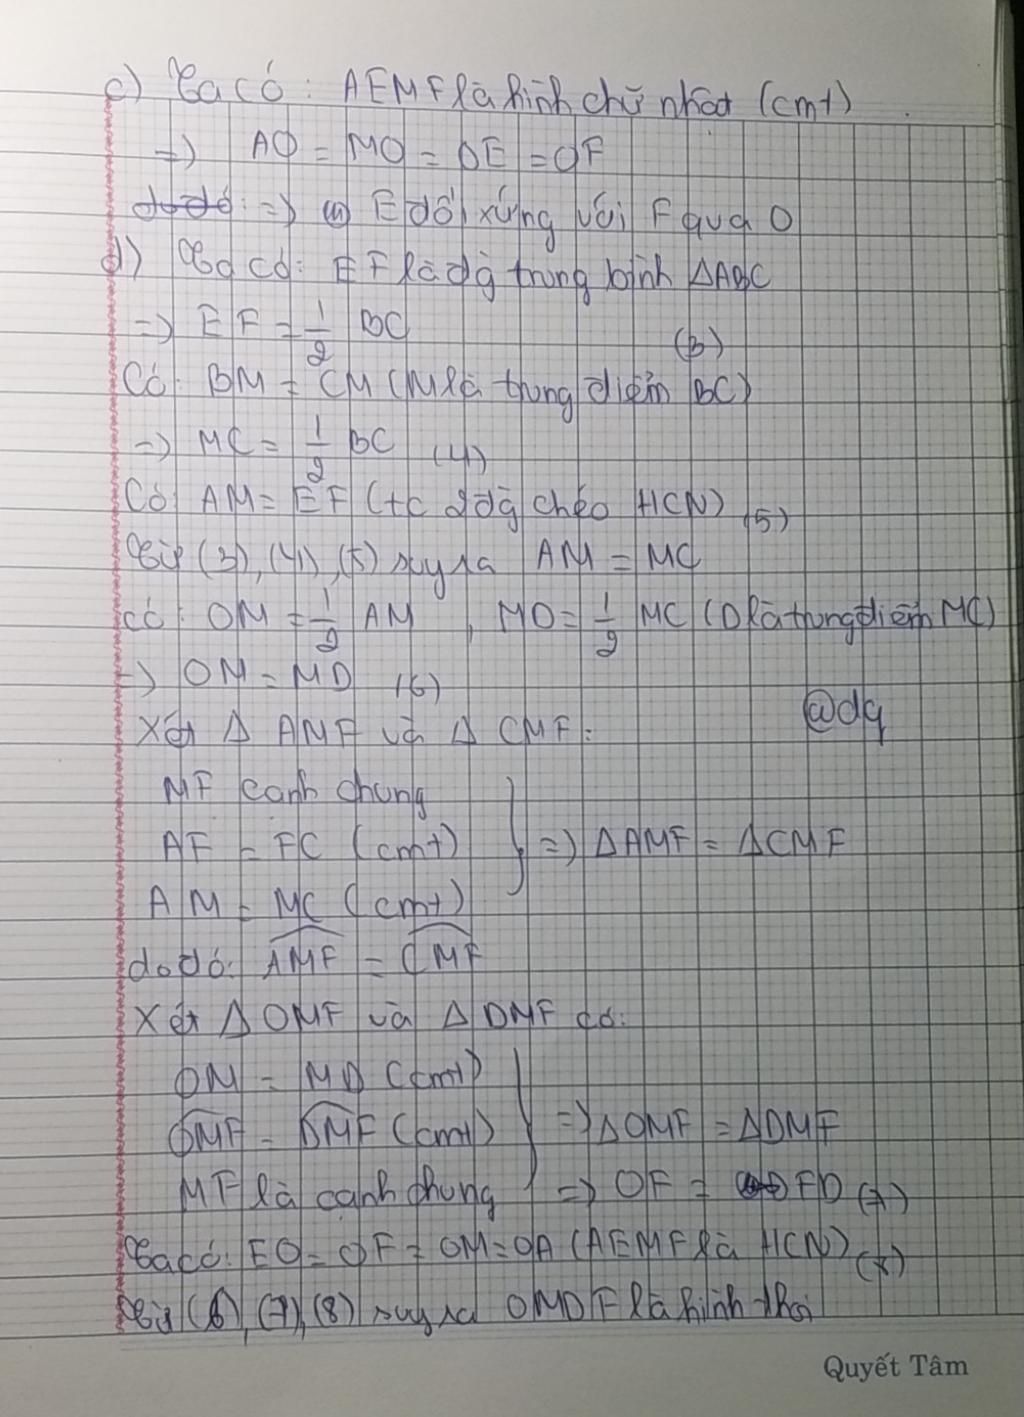 c) Ta có: AEMF là hình chữ nhật (cmt)
=) AO = MO = OE = OF
do đó: =) E đối xứng với F qua O
d) Ta có: EF là đg trung bình ΔABC
=) EF = 1/2 BC (3)
Có: BM = CM (M là trung điểm BC)
=) MC = 1/2 BC (4)
Có AM = EF (tc 2 đg chéo HCN) (5)
Từ (3), (4), (5) suy ra AM = MC
có: OM = 1/2 AM , MD = 1/2 MC (D là trung điểm MC)
=) OM = MD (6)
@dq
Xét Δ AMF và Δ CMF:
MF cạnh chung
AF = FC (cmt) =) ΔAMF = ΔCMF
AM = MC (cmt)
do đó: AMF = CMF
Xét Δ OMF và Δ DMF có:
OM = MD (cmt)
OMF = DMF (cmt) =) ΔOMF = ΔDMF
MF là cạnh chung =) OF = FD (7)
Ta có: EO = OF = OM = OA (AEMF là HCN) (8)
Từ (6), (7), (8) suy ra OMDF là hình thoi
Quyết Tâm